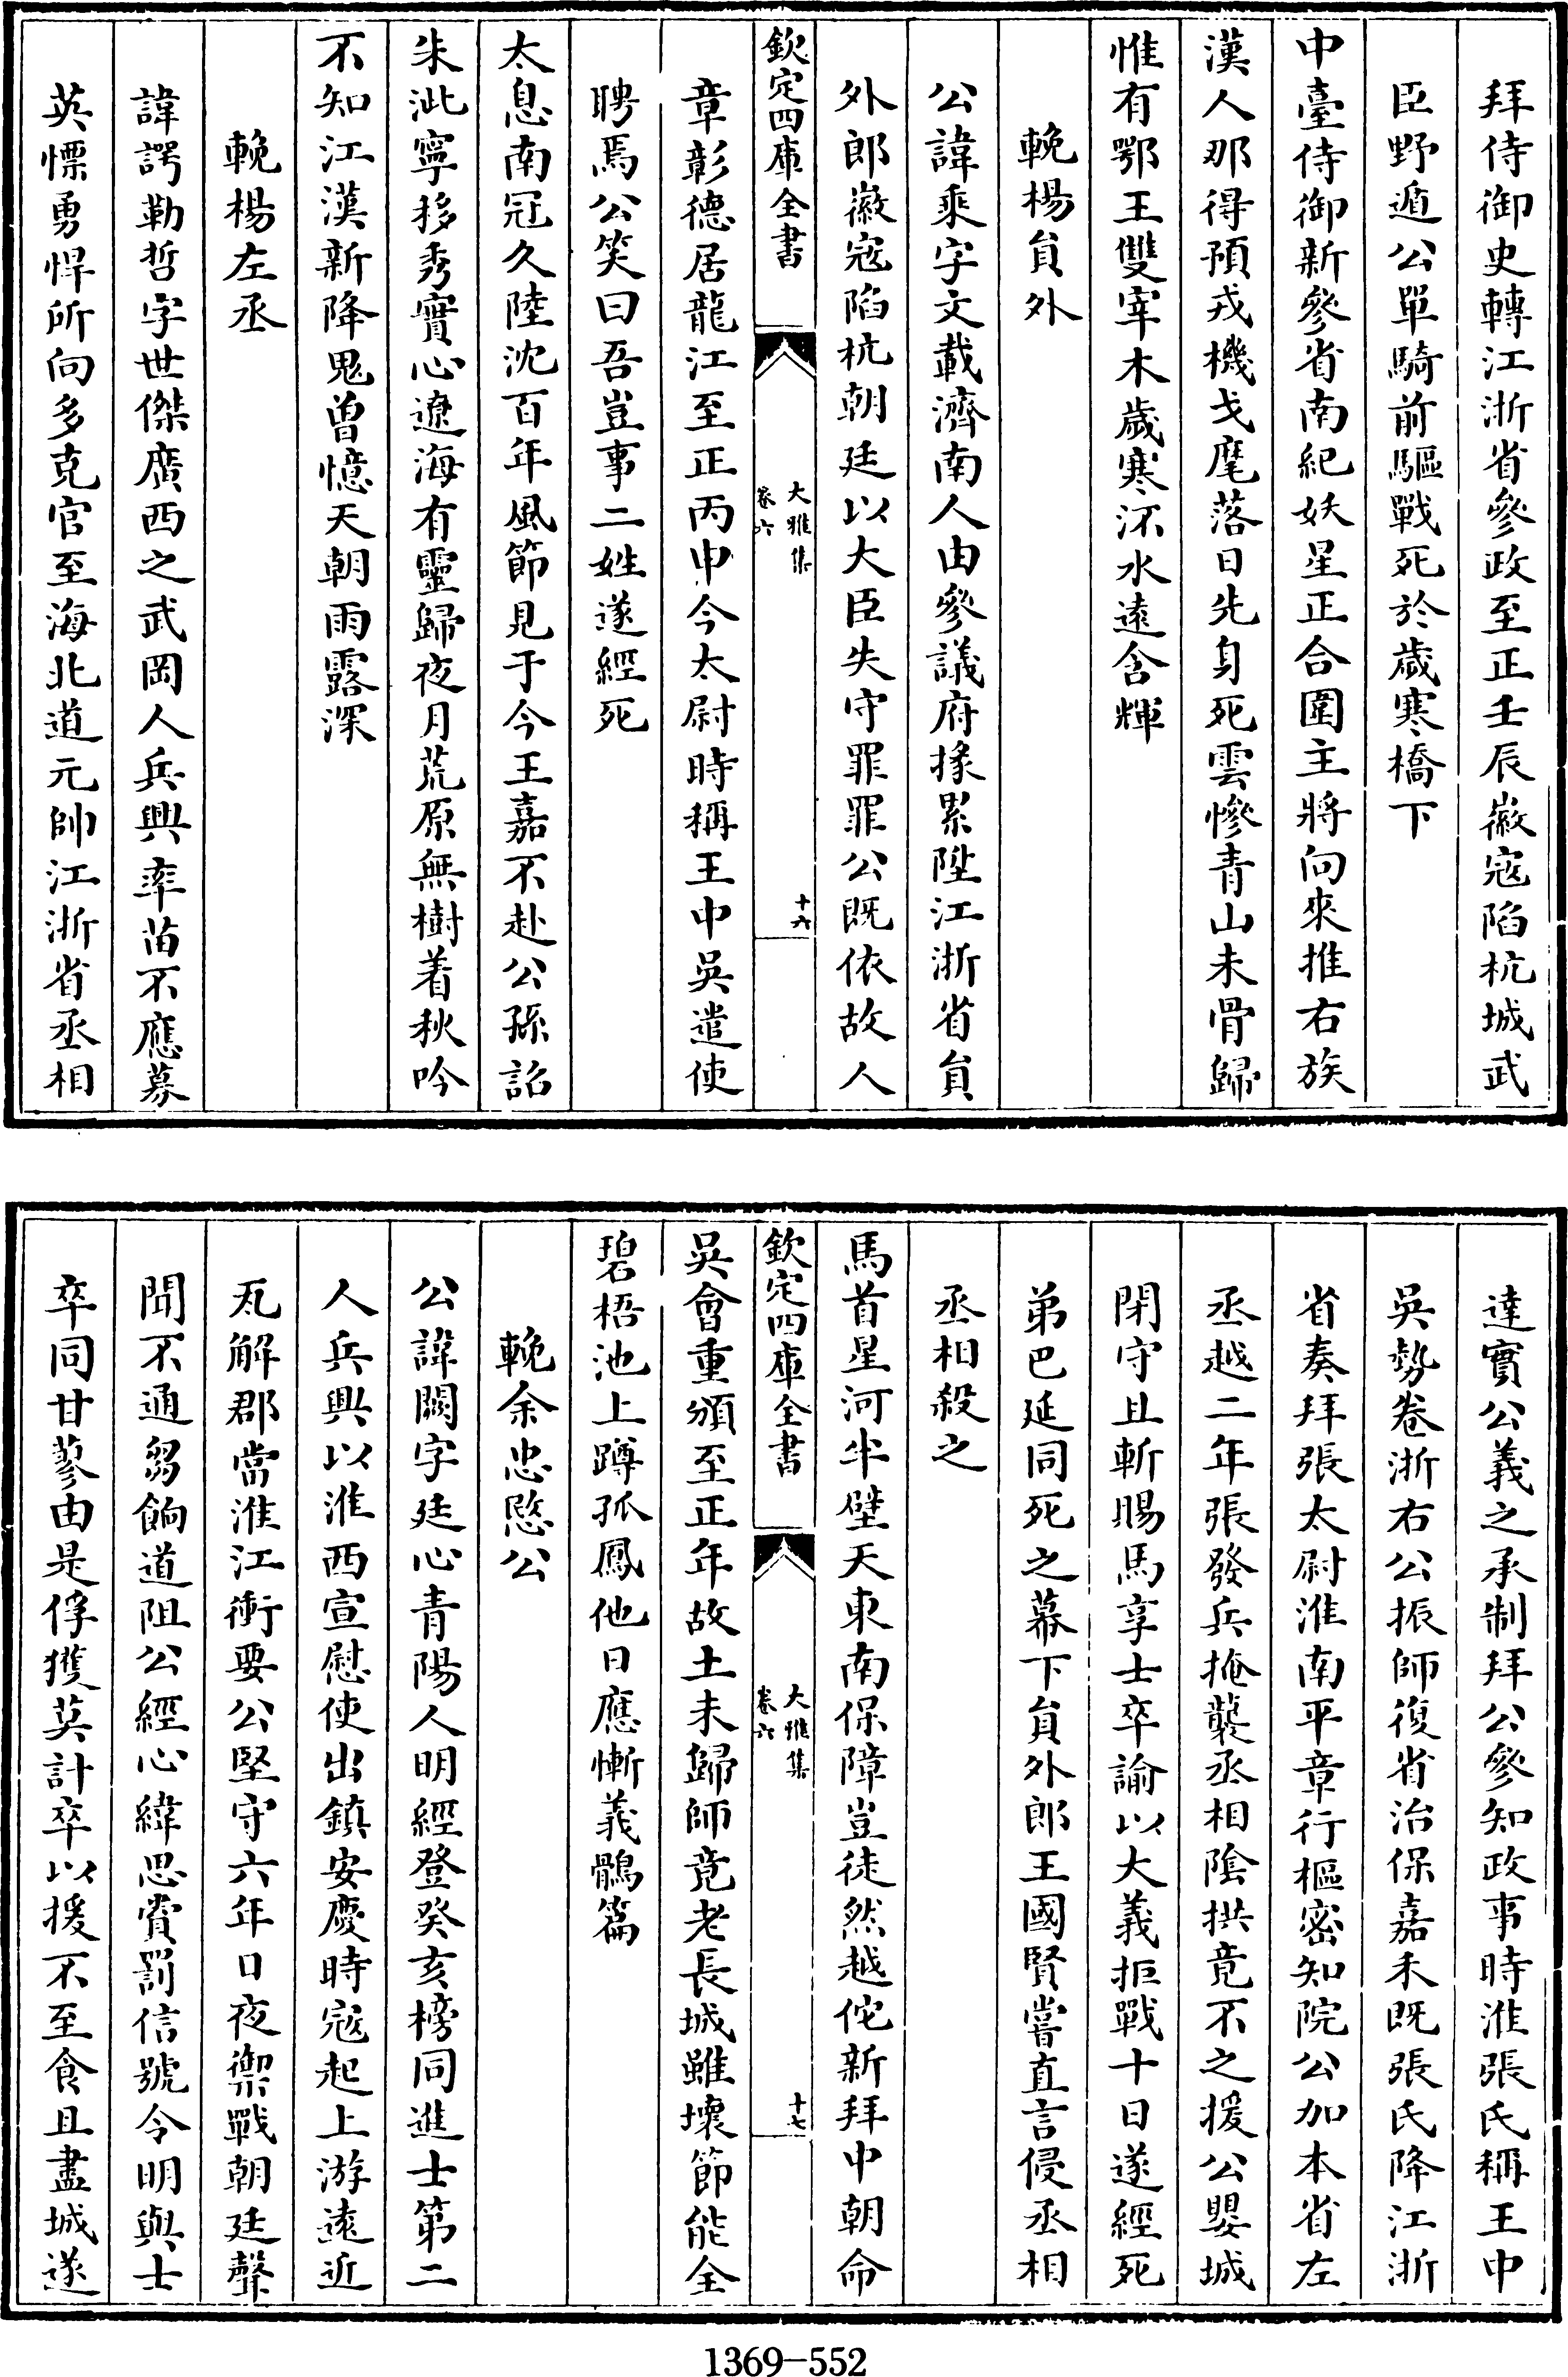 拜侍御史轉江浙省參政至正壬辰徽寇陷杭城武
臣野遁公單騎前驅戰死於歲寒橋下
中臺侍御新參省南紀妖星正合圍主將向來推右族
漢人那得預戎機戈麾落日先身死雲慘青山未骨歸
惟有鄂王雙宰木歲寒沠水遠含輝
輓楊貟外
公諱乘字文載濟南人由參議府掾累陞江浙省貟
外郎徽寇陷杭朝廷以大臣失守罪罪公既依故人
欽定四庫全書
大雅集
卷六
十六
章彰德居龍江至正丙申今太尉時稱王中吳遣使
聘焉公笑曰吾豈事二姓遂經死
太息南冠久陸沈百年風節見于今王嘉不赴公孫詔
朱泚寧移秀實心遼海有靈歸夜月荒原無樹着秋吟
不知江漢新降鬼曾憶天朝雨露深
輓楊左丞
諱諤勒哲字世傑廣西之武岡人兵興率苗不應募
英慓勇悍所向多克官至海北道元帥江浙省丞相
達實公義之承制拜公參知政事時淮張氏稱王中
吳勢卷浙右公振師復省治保嘉禾既張氏降江浙
省奏拜張太尉淮南平章行樞密知院公加本省左
丞越二年張發兵掩襲丞相陰拱竟不之援公嬰城
閉守且斬賜馬享士卒諭以大義拒戰十日遂經死
弟巴延同死之幕下貟外郎王國賢嘗直言侵丞相
丞相殺之
馬首星河半壁天東南保障豈徒然越佗新拜中朝命
欽定四庫全書
大雅集
卷六
十七
吳會重頒至正年故土未歸師竟老長城雖壞節能全
碧梧池上蹲孤鳳他日應慚義鶻篇
輓余忠愍公
公諱闕字廷心青陽人明經登癸亥榜同進士第二
人兵興以淮西宣慰使出鎮安慶時寇起上游遠近
瓦解郡當淮江衝要公堅守六年日夜禦戰朝廷聲
聞不通芻餉道阻公經心緯思賞罰信號令明與士
卒同甘蓼由是俘獲莫計卒以援不至食且盡城遂
1369-552